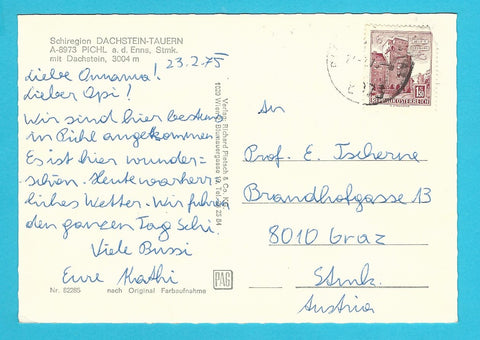 Schiregion DACHSTEIN-TAUERN
A-8973 PICHL a. d. Enns, Stmk.
mit Dachstein, 3004 m
23.2.75
Liebe Annama!
Lieber Opi!
Wir sind hier bestens
in Pichl angekommen.
Es ist hier wunder=
schön. Heute war herr=
liches Wetter. Wir fuhren
den ganzen Tag Schi.
Viele Bussi
Eure Kathi
Nr. 82285 nach Original Farbaufnahme
Verlag: Richard Pietsch & Co. KG.
1020 Wien
PAG
REPUBLIK ÖSTERREICH
An
Prof. E. Tscherne
Brandhofgasse 13
8010 Graz
Stmk.
Austria